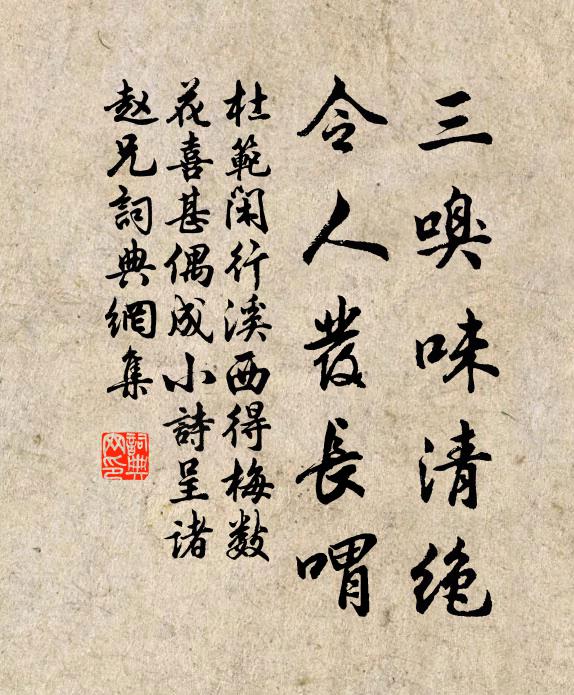 三嗅味清绝
令人發長喟
杜範闲行溪西得梅數
花喜甚偶成小詩呈诸
赵兄詞典網集
詞典
网印